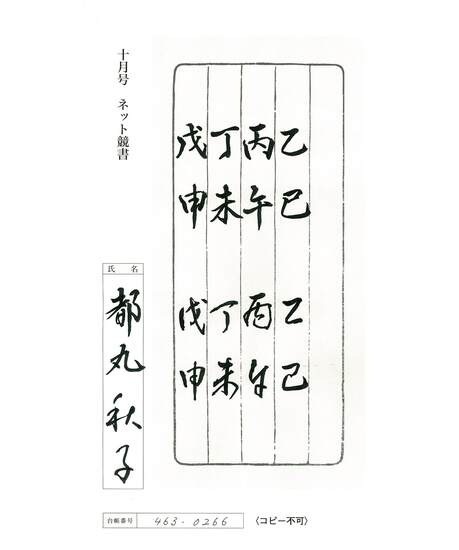 十月号　ネット競書
乙巳　乙巳
丙午　丙午
丁未　丁未
戊申　戊申
氏名
都丸秋子
台帳番号 463-0266
〈コピー不可〉